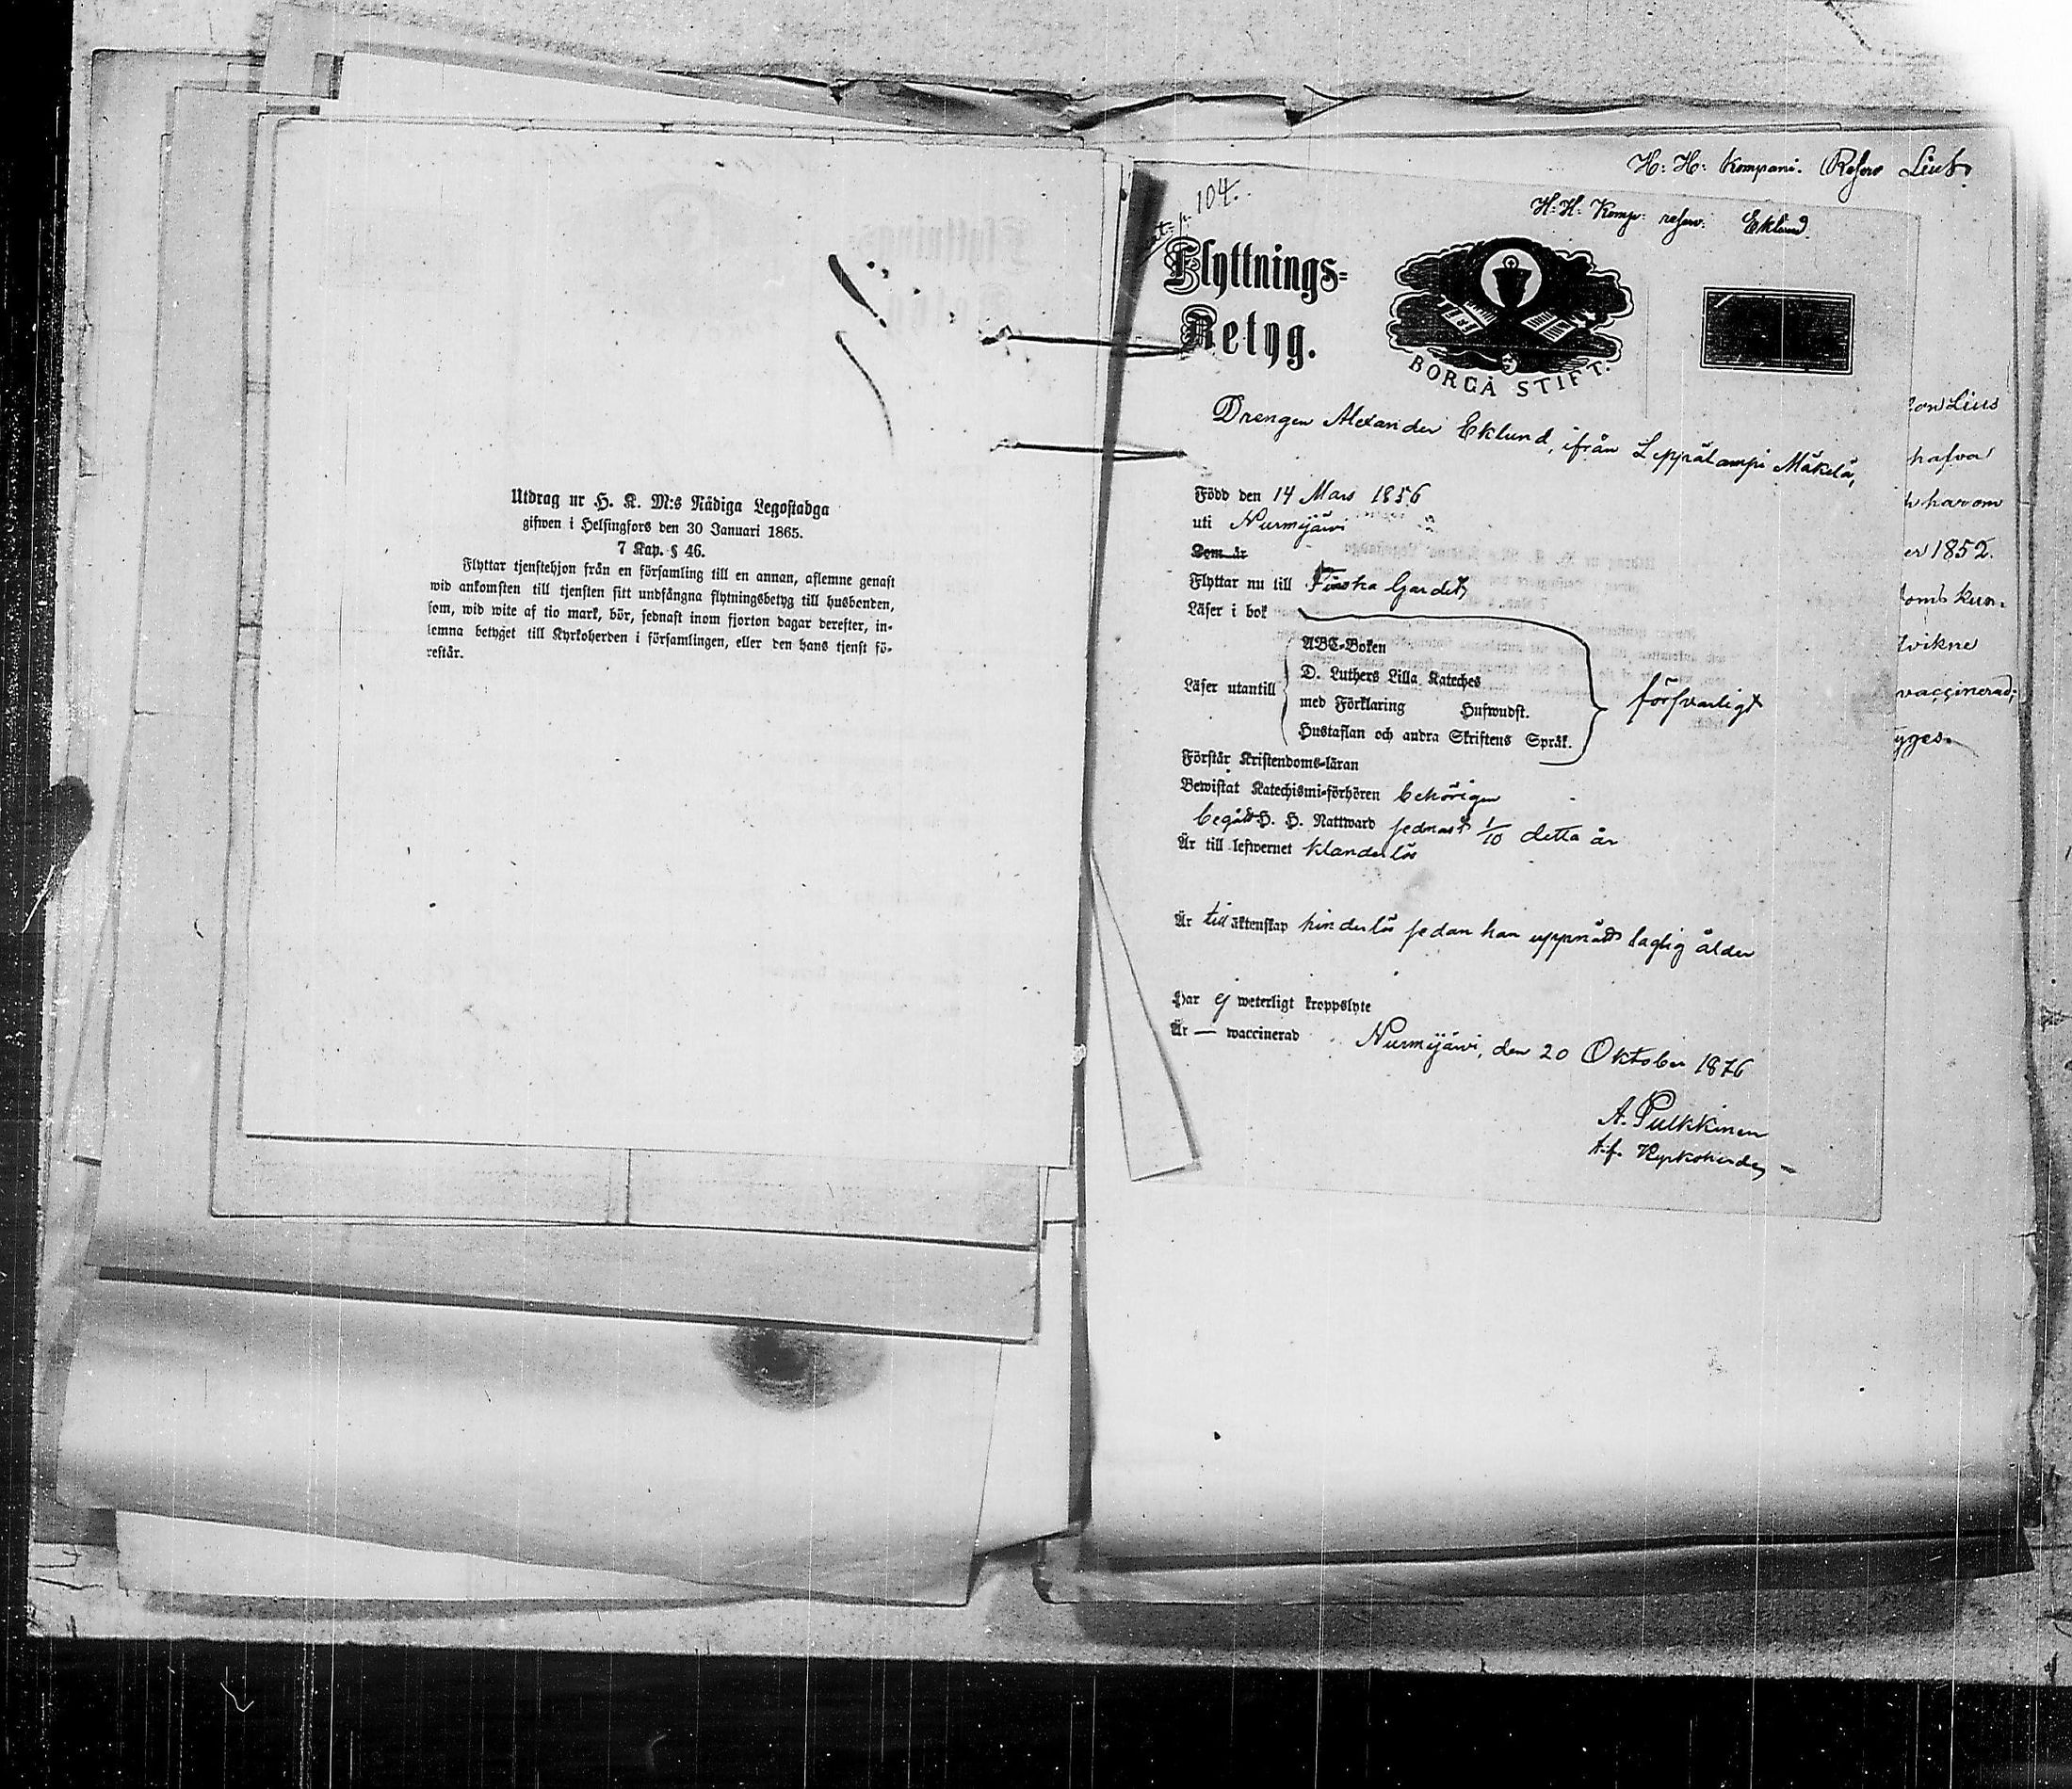 Utdrag ur H. K. M:s Nådiga Legostadga
gifwen i Helsingfors den 30 Januari 1865.
7 Kap. § 46.
Flyttar tjenstehjon från en församling till en annan, aflemne genast
wid ankomsten till tjensten sitt undfångna flytningsbetyg till husbonden,
som, wid wite af tio mark, bör, sednast inom fjorton dagar derefter, in-
lemna betyget till Kyrkoherden i församlingen, eller den hans tjenst fö-
restår.
H: H: Kompani. Reserv
H: H: Komp: reserv: Eklund.
p. 104.
Flyttnings-
Betyg.
BORGÅ STIFT.
Drengen Alexander Eklund, ifrån Leppälampi Mäkelä,
Född den 14 Mars 1856
uti Nurmijärvi
Som är
Flyttar nu till Finska Gardet
Läser i bok
Läser utantill
ABC-Boken
D. Luthers Lilla Kateches
med Förklaring Hufwudst.
Hustaflan och andra Skriftens Språk.
försvarligt
Förstår Kristendoms-läran
Bewistat Katechismi-förhören behörigen
begått H. H. Nattward sednast 1/10 detta år
Är till lefwernet klanderlös
Är till äktenskap hinderlös sedan han uppnått laglig ålder
Har ej weterligt kroppslyte
Är — waccinerad
Nurmijärvi, den 20 Oktober 1876
A. Pulkkinen
t.f. Kyrkoherde
hafva
har om
er 1852.
vaccinerad;